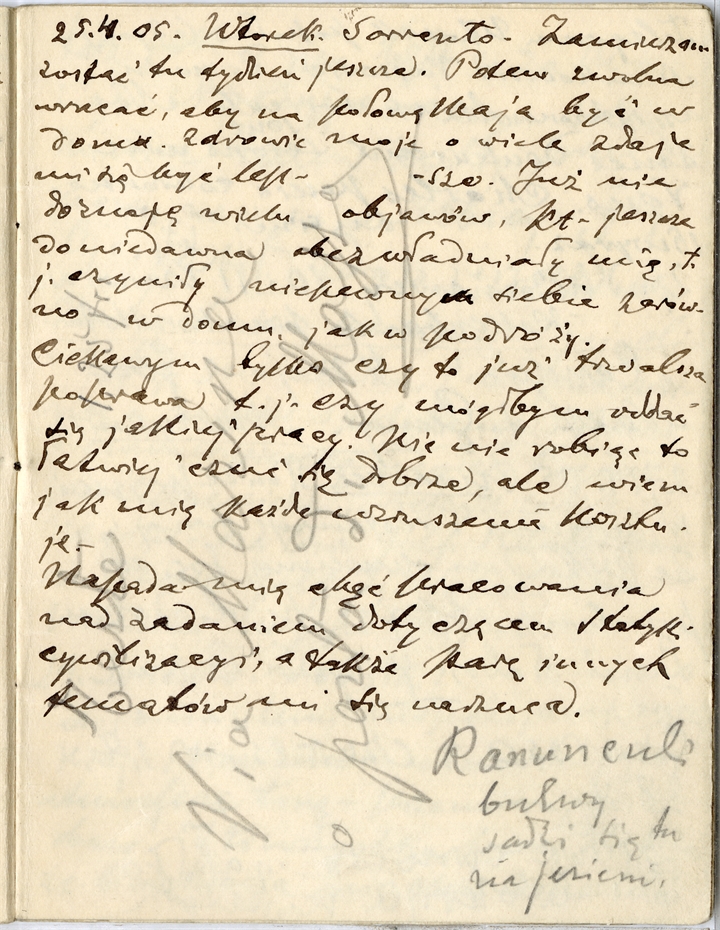 25.4.05. Wtorek. Sorrento. Zamierzam
zostać tu tydzień jeszcze. Potem zwolna
wracać, aby na połowę Maja być w
domu. Zdrowie moje o wiele zdaje
mi się być lep- -sze. Już nie
doznaję wielu objawów, kt- jeszcze
doniedawna obezwładniały mię, t.
j. czyniły niepewnym siebie zarów-
no w domu, jak w podróży.
Ciekawym tylko czy to już trwalsza
poprawa t.j. czy mógłbym oddać
się jakiej pracy. Nic nie robiąc to
łatwiej czuć się dobrze, ale wiem
jak mię każde wzruszenie kosztu-
je.-
Napada mię chęć pracowania
nad zadaniem dotyczącem statyki
cywilizacyi, a także parę innych
tematów mi się narzuca.
Ranunculi
bulwy
sadzi się tu
na jesieni.
Via